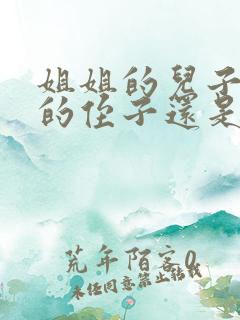 姐姐的兒子
的侄子還是
荒年陌客0
未经同意禁止转载